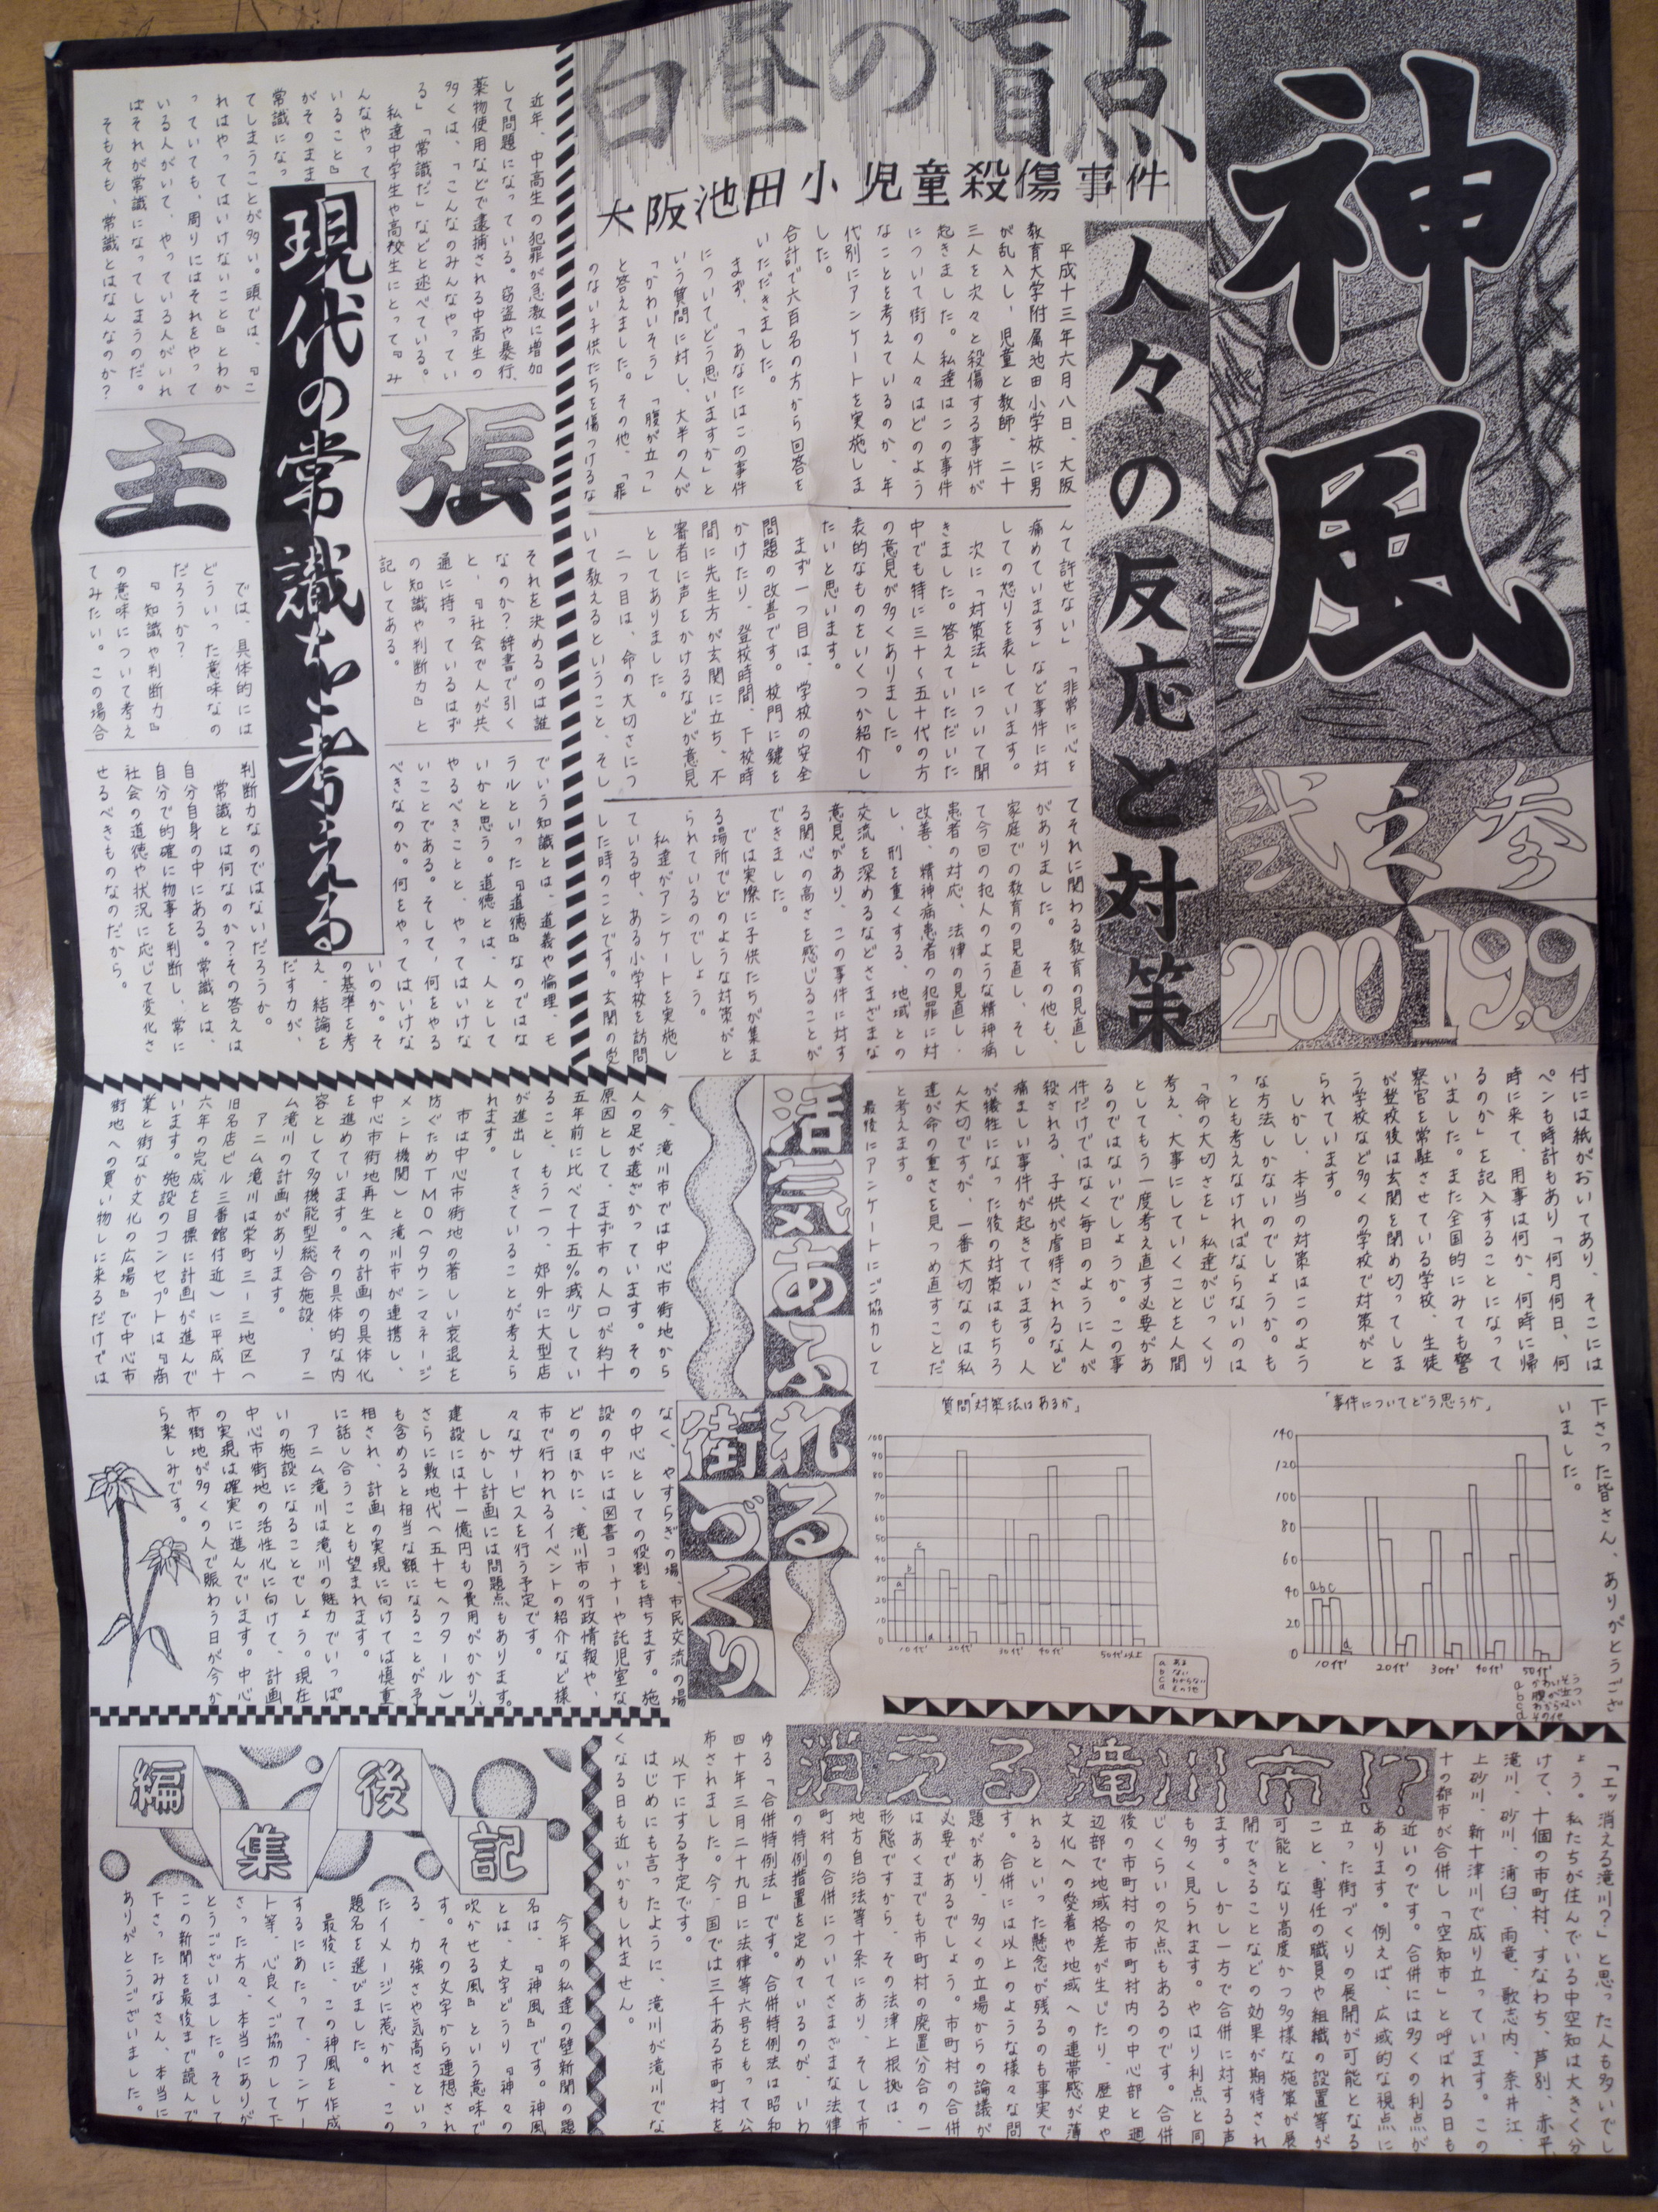 神風
弐之参
2001 9,9
白昼の盲点
大阪池田小児童殺傷事件
人々の反応と対策
平成十三年六月八日、大阪
教育大学附属池田小学校に男
が乱入し、児童と教師、二十
三人を次々と殺傷する事件が
起きました。私達はこの事件
について街の人々はどのよう
なことを考えているのか、年
代別にアンケートを実施しま
した。
合計で六百名の方から回答を
いただきました。
まず、「あなたはこの事件
についてどう思いますか」と
いう質問に対し、大半の人が
「かわいそう」「腹が立つ」
と答えました。その他、「罪
のない子供たちを傷つけるな
んて許せない」「非常に心を
痛めています」など事件に対
しての怒りを表しています。
次に「対策法」について聞
きました。答えていただいた
中でも特に三十～五十代の方
の意見が多くありました。
表的なものをいくつか紹介し
たいと思います。
まず一つ目は、学校の安全
問題の改善です。校門に鍵を
かけたり、登校時間、下校時
間に先生方が玄関に立ち、不
審者に声をかけるなどが意見
としてありました。
二つ目は、命の大切さにつ
いて教えるということ、そし
てそれに関わる教育の見直し
がありました。その他も、
家庭での教育の見直し、そし
て今回の犯人のような精神病
患者の対応、法律の見直し・
改善、精神病患者の犯罪に対
し、刑を重くする、地域との
交流を深めるなどさまざまな
意見があり、この事件に対す
る関心の高さを感じることが
できました。
では実際に子供たちが集ま
る場所でどのような対策がと
られているのでしょう。
私達がアンケートを実施し
ている中、ある小学校を訪問
した時のことです。玄関の受
付には紙がおいてあり、そこには
ペンも時計もあり「何月何日、何
時に来て、用事は何か、何時に帰
るのか」を記入することになって
いました。また全国的にみても警
察官を常駐させている学校、生徒
が登校後は玄関を閉め切ってしま
う学校など多くの学校で対策がと
られています。
しかし、本当の対策はこのよう
な方法しかないのでしょうか。も
っとも考えなければならないのは
「命の大切さを」私達がじっくり
考え、大事にしていくことを人間
としてもう一度考え直す必要があ
るのではないでしょうか。この事
件だけではなく毎日のように人が
殺される、子供が虐待されるなど
痛ましい事件が起きています。人
が犠牲になった後の対策はもちろ
ん大切ですが、一番大切なのは私
達が命の重さを見つめ直すことだ
と考えます。
最後にアンケートにご協力して
下さった皆さん、ありがとうござ
いました。
「事件についてどう思うか」
140
120
100
80
60
40
20
0
a b c
d
10代 20代 30代 40代 50代
a かわいそう
b 腹が立つ
c わからない
d その他
質問「対策法はあるか」
100
90
80
70
60
50
40
30
20
10
0
a b c
d
10代 20代 30代 40代 50代以上
a ある
b ない
c わからない
d その他
主張
現代の常識を考える
近年、中高生の犯罪が急激に増加
して問題になっている。窃盗や暴行、
薬物使用などで逮捕される中高生の
多くは、「こんなのみんなやってい
る」「常識だ」などと述べている。
私達中学生や高校生にとって『み
んなやって
いること』
がそのまま
常識になっ
てしまうことが多い。頭では、『こ
れはやってはいけないこと』とわか
っていても、周りにはそれをやって
いる人がいて、やっている人がいれ
ばそれが常識になってしまうのだ。
そもそも、常識とはなんなのか?
それを決めるのは誰
なのか?辞書で引く
と、『社会で人が共
通に持っているはず
の知識や判断力』と
記してある。
では、具体的には
どういった意味なの
だろうか?
『知識や判断力』
の意味について考え
てみたい。この場合
でいう知識とは、道義や倫理、モ
ラルといった『道徳』なのではな
いかと思う。道徳とは、人として
やるべきことと、やってはいけな
いことである。そして、何をやる
べきなのか。何をやってはいけな
いのか。そ
の基準を考
え、結論を
だす力が、
判断力なのではないだろうか。
常識とは何なのか?その答えは
自分自身の中にある。常識とは、
自分で的確に物事を判断し、常に
社会の道徳や状況に応じて変化さ
せるべきものなのだから。
活気あふれる街づくり
今、滝川市では中心市街地から
人の足が遠ざかっています。その
原因として、まず市の人口が約十
五年前に比べて十五%減少してい
ること、もう一つ、郊外に大型店
が進出してきていることが考えら
れます。
市は中心市街地の著しい衰退を
防ぐためTMO(タウンマネージ
メント機関)と滝川市が連携し、
中心市街地再生への計画の具体化
を進めています。その具体的な内
容として多機能型総合施設、アニ
ム滝川の計画があります。
アニム滝川は栄町三ー三地区(
旧名店ビル三番館付近)に平成十
六年の完成を目標に計画が進んで
います。施設のコンセプトは『商
業と街なか文化の広場』で中心市
街地への買い物しに来るだけでは
なく、やすらぎの場、市民交流の場
の中心としての役割を持ちます。施
設の中には図書コーナーや託児室な
どのほかに、滝川市の行政情報や、
市で行われるイベントの紹介など様
々なサービスを行う予定です。
しかし計画には問題点もあります。
建設には十一億円もの費用がかかり、
さらに敷地代(五十七ヘクタール)
も含めると相当な額になることが予
想され、計画の実現に向けては慎重
に話し合うことも望まれます。
アニム滝川は滝川の魅力でいっぱ
いの施設になることでしょう。現在
中心市街地の活性化に向けて、計画
の実現は確実に進んでいます。中心
市街地が多くの人で賑わう日が今か
ら楽しみです。
消える滝川市!?
「エッ消える滝川?」と思った人も多いでし
ょう。私たちが住んでいる中空知は大きく分
けて、十個の市町村、すなわち、芦別、赤平、
滝川、砂川、浦臼、雨竜、歌志内、奈井江、
上砂川、新十津川で成り立っています。この
十の都市が合併し「空知市」と呼ばれる日も
近いのです。合併には多くの利点が
あります。例えば、広域的な視点に
立った街づくりの展開が可能となる
こと、専任の職員や組織の設置等が
可能となり高度かつ多様な施策が展
開できることなどの効果が期待され
ます。しかし一方で合併に対する声
も多く見られます。やはり利点と同
じくらいの欠点もあるのです。合併
後の市町村の市町村内の中心部と週
辺部で地域格差が生じたり、歴史や
文化への愛着や地域への連帯感が薄
れるといった懸念が残るのも事実で
す。合併には以上のような様々な問
題があり、多くの立場からの論議が
必要であるでしょう。市町村の合併
はあくまでも市町村の廃置分合の一
形態ですから、その法律上根拠は、
地方自治法等十条にあり、そして市
町村の合併についてさまざまな法律
の特例措置を定めているのが、いわ
ゆる「合併特例法」です。合併特例法は昭和
四十年三月二十九日に法律等六号をもって公
布されました。今、国では三千ある市町村を
以下にする予定です。
はじめにも言ったように、滝川が滝川でな
くなる日も近いかもしれません。
編集後記
今年の私達の壁新聞の題
名は、『神風』です。神風
とは、文字どうり『神々の
吹かせる風』という意味で
す。その文字から連想され
る、力強さや気高さといっ
たイメージに惹かれ、この
題名を選びました。
最後に、この神風を作成
するにあたって、アンケー
ト等、心良くご協力して下
さった方々、本当にありが
とうございました。そして
この新聞を最後まで読んで
下さったみなさん、本当に
ありがとうございました。